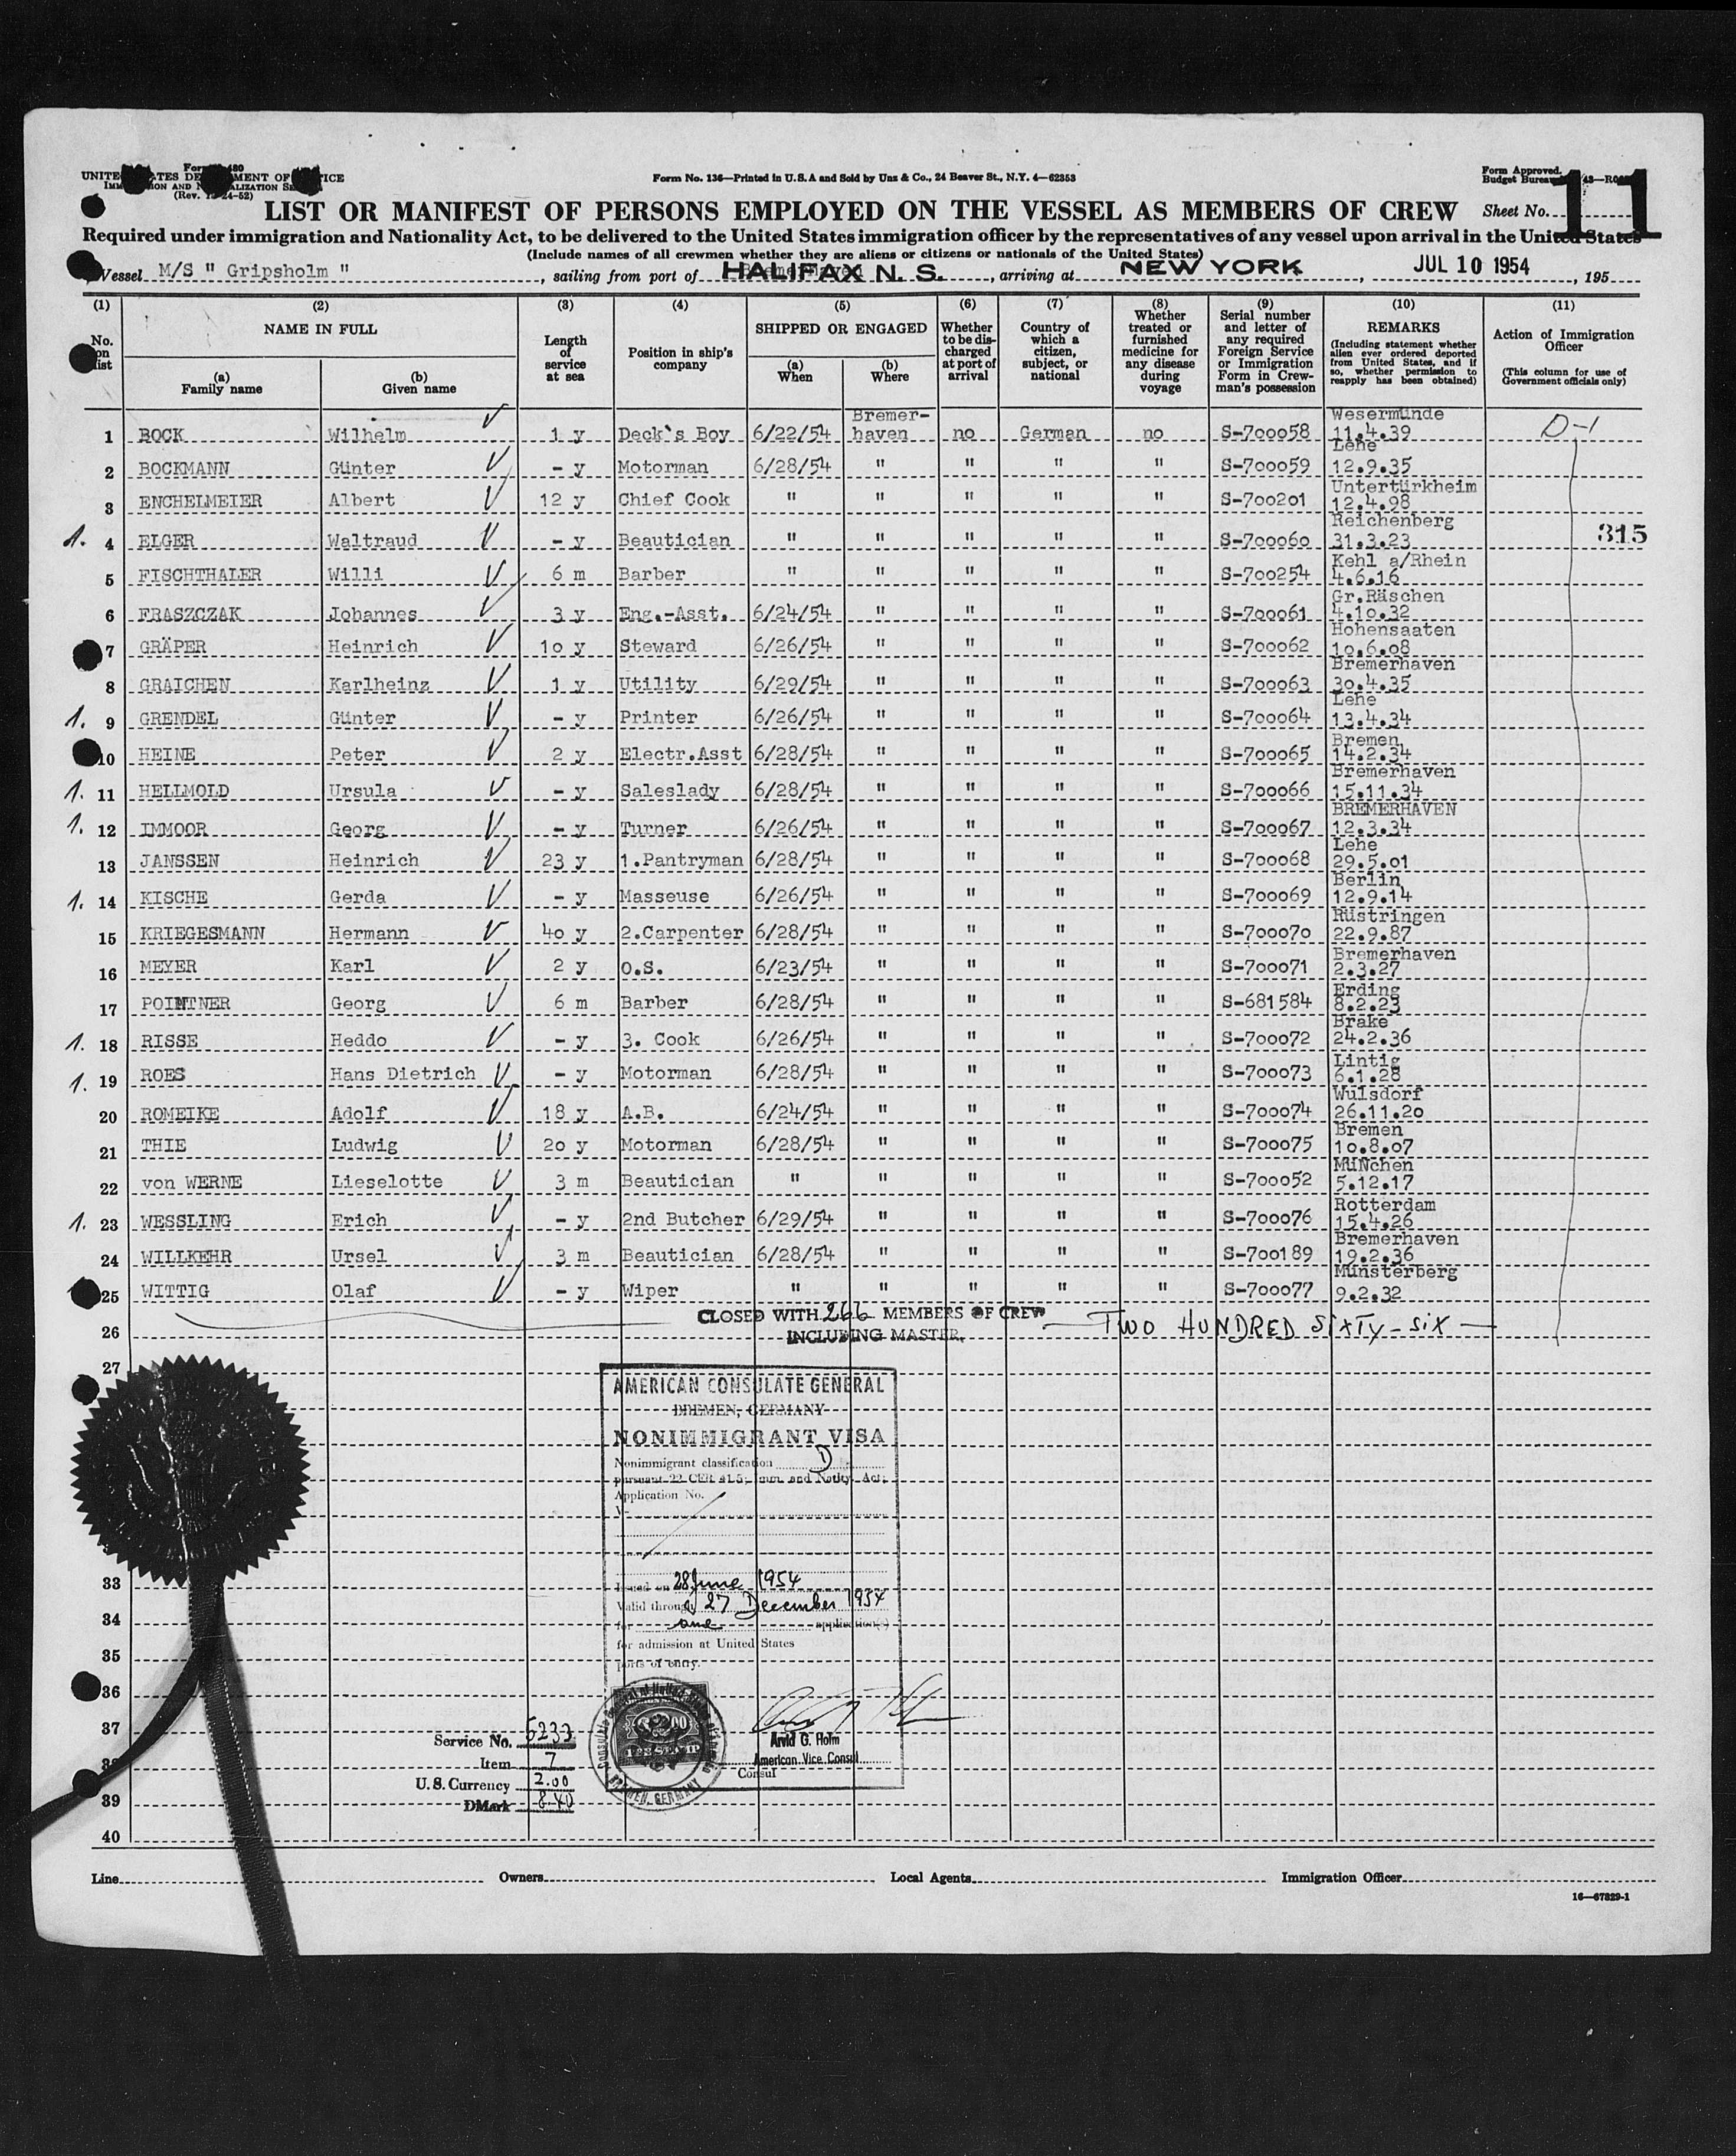 Form No. 136—Printed in U.S.A and Sold by Unz & Co., 24 Beaver St., N.Y. 4—62353
Form Approved.
LIST OR MANIFEST OF PERSONS EMPLOYED ON THE VESSEL AS MEMBERS OF CREW Sheet No. 11
Required under immigration and Nationality Act, to be delivered to the United States immigration officer by the representatives of any vessel upon arrival in the United States
(Include names of all crewmen whether they are aliens or citizens or nationals of the United States)
Vessel M/S " Gripsholm ", sailing from port of HALIFAX N. S., arriving at NEW YORK, JUL 10 1954, 195
(1) (2) (3) (4) (5) (6) (7) (8) (9) (10) (11)
No. on list NAME IN FULL (a) Family name (b) Given name Length of service at sea Position in ship's company SHIPPED OR ENGAGED (a) When (b) Where Whether to be discharged at port of arrival Country of which a citizen, subject, or national Whether treated or furnished medicine for any disease during voyage Serial number and letter of any required Foreign Service or Immigration Form in Crewman's possession REMARKS (Including statement whether alien ever ordered deported from United States, and if so, whether permission to reapply has been obtained) Action of Immigration Officer (This column for use of Government officials only)
1 BOCK Wilhelm 1 y Deck's Boy 6/22/54 Bremerhaven no German no S-700058 Wesermünde 11.4.39 D-1
2 BOCKMANN Günter - y Motorman 6/28/54 " " " " S-700059 Lehe 12.9.35
3 ENCHELMEIER Albert 12 y Chief Cook " " " " " S-700201 Untertürkheim 12.4.98
1. 4 ELGER Waltraud - y Beautician " " " " " S-700060 Reichenberg 31.3.23 315
5 FISCHTHALER Willi 6 m Barber " " " " " S-700254 Kehl a/Rhein 4.6.16
6 FRASZCZAK Johannes 3 y Eng.-Asst. 6/24/54 " " " " S-700061 Gr.Räschen 4.10.32
7 GRÄPER Heinrich 10 y Steward 6/26/54 " " " " S-700062 Hohensaaten 10.6.08
8 GRAICHEN Karlheinz 1 y Utility 6/29/54 " " " " S-700063 Bremerhaven 30.4.35
1. 9 GRENDEL Günter - y Printer 6/26/54 " " " " S-700064 Lehe 13.4.34
10 HEINE Peter 2 y Electr.Asst 6/28/54 " " " " S-700065 Bremen 14.2.34
1. 11 HELLMOLD Ursula - y Saleslady 6/28/54 " " " " S-700066 Bremerhaven 15.11.34
1. 12 IMMOOR Georg - y Turner 6/26/54 " " " " S-700067 BREMERHAVEN 12.3.34
13 JANSSEN Heinrich 23 y 1.Pantryman 6/28/54 " " " " S-700068 Lehe 29.5.01
1. 14 KISCHE Gerda - y Masseuse 6/26/54 " " " " S-700069 Berlin 12.9.14
15 KRIEGESMANN Hermann 40 y 2.Carpenter 6/28/54 " " " " S-700070 Rüstringen 22.9.87
16 MEYER Karl 2 y O.S. 6/23/54 " " " " S-700071 Bremerhaven 2.3.27
17 POINTNER Georg 6 m Barber 6/28/54 " " " " S-681584 Erding 8.2.23
1. 18 RISSE Heddo - y 3. Cook 6/26/54 " " " " S-700072 Brake 24.2.36
1. 19 ROES Hans Dietrich - y Motorman 6/28/54 " " " " S-700073 Lintig 6.1.28
20 ROMEIKE Adolf 18 y A.B. 6/24/54 " " " " S-700074 Wulsdorf 26.11.20
21 THIE Ludwig 20 y Motorman 6/28/54 " " " " S-700075 Bremen 10.8.07
22 von WERNE Lieselotte 3 m Beautician " " " " " S-700052 MüNchen 5.12.17
1. 23 WESSLING Erich - y 2nd Butcher 6/29/54 " " " " S-700076 Rotterdam 15.4.26
24 WILLKEHR Ursel 3 m Beautician 6/28/54 " " " " S-700189 Bremerhaven 19.2.36
25 WITTIG Olaf - y Wiper " " " " " S-700077 Münsterberg 9.2.32
CLOSED WITH 266 MEMBERS OF CREW — TWO HUNDRED SIXTY-SIX —
26 INCLUDING MASTER.
27
AMERICAN CONSULATE GENERAL
BREMEN, GERMANY
NONIMMIGRANT VISA
Nonimmigrant classification D
Application No.
V-
33 Issued on 28 June 1954
Valid through 27 December 1954
34 for one application(s)
for admission at United States
35 ports of entry.
36
37
Service No. 5233 Arvid G. Holm
Item 7 American Vice Consul
Consul
U.S. Currency 2.00
39 DMark 8.40
BREMEN, GERMANY
40
Line Owners Local Agents Immigration Officer
16—67829-1